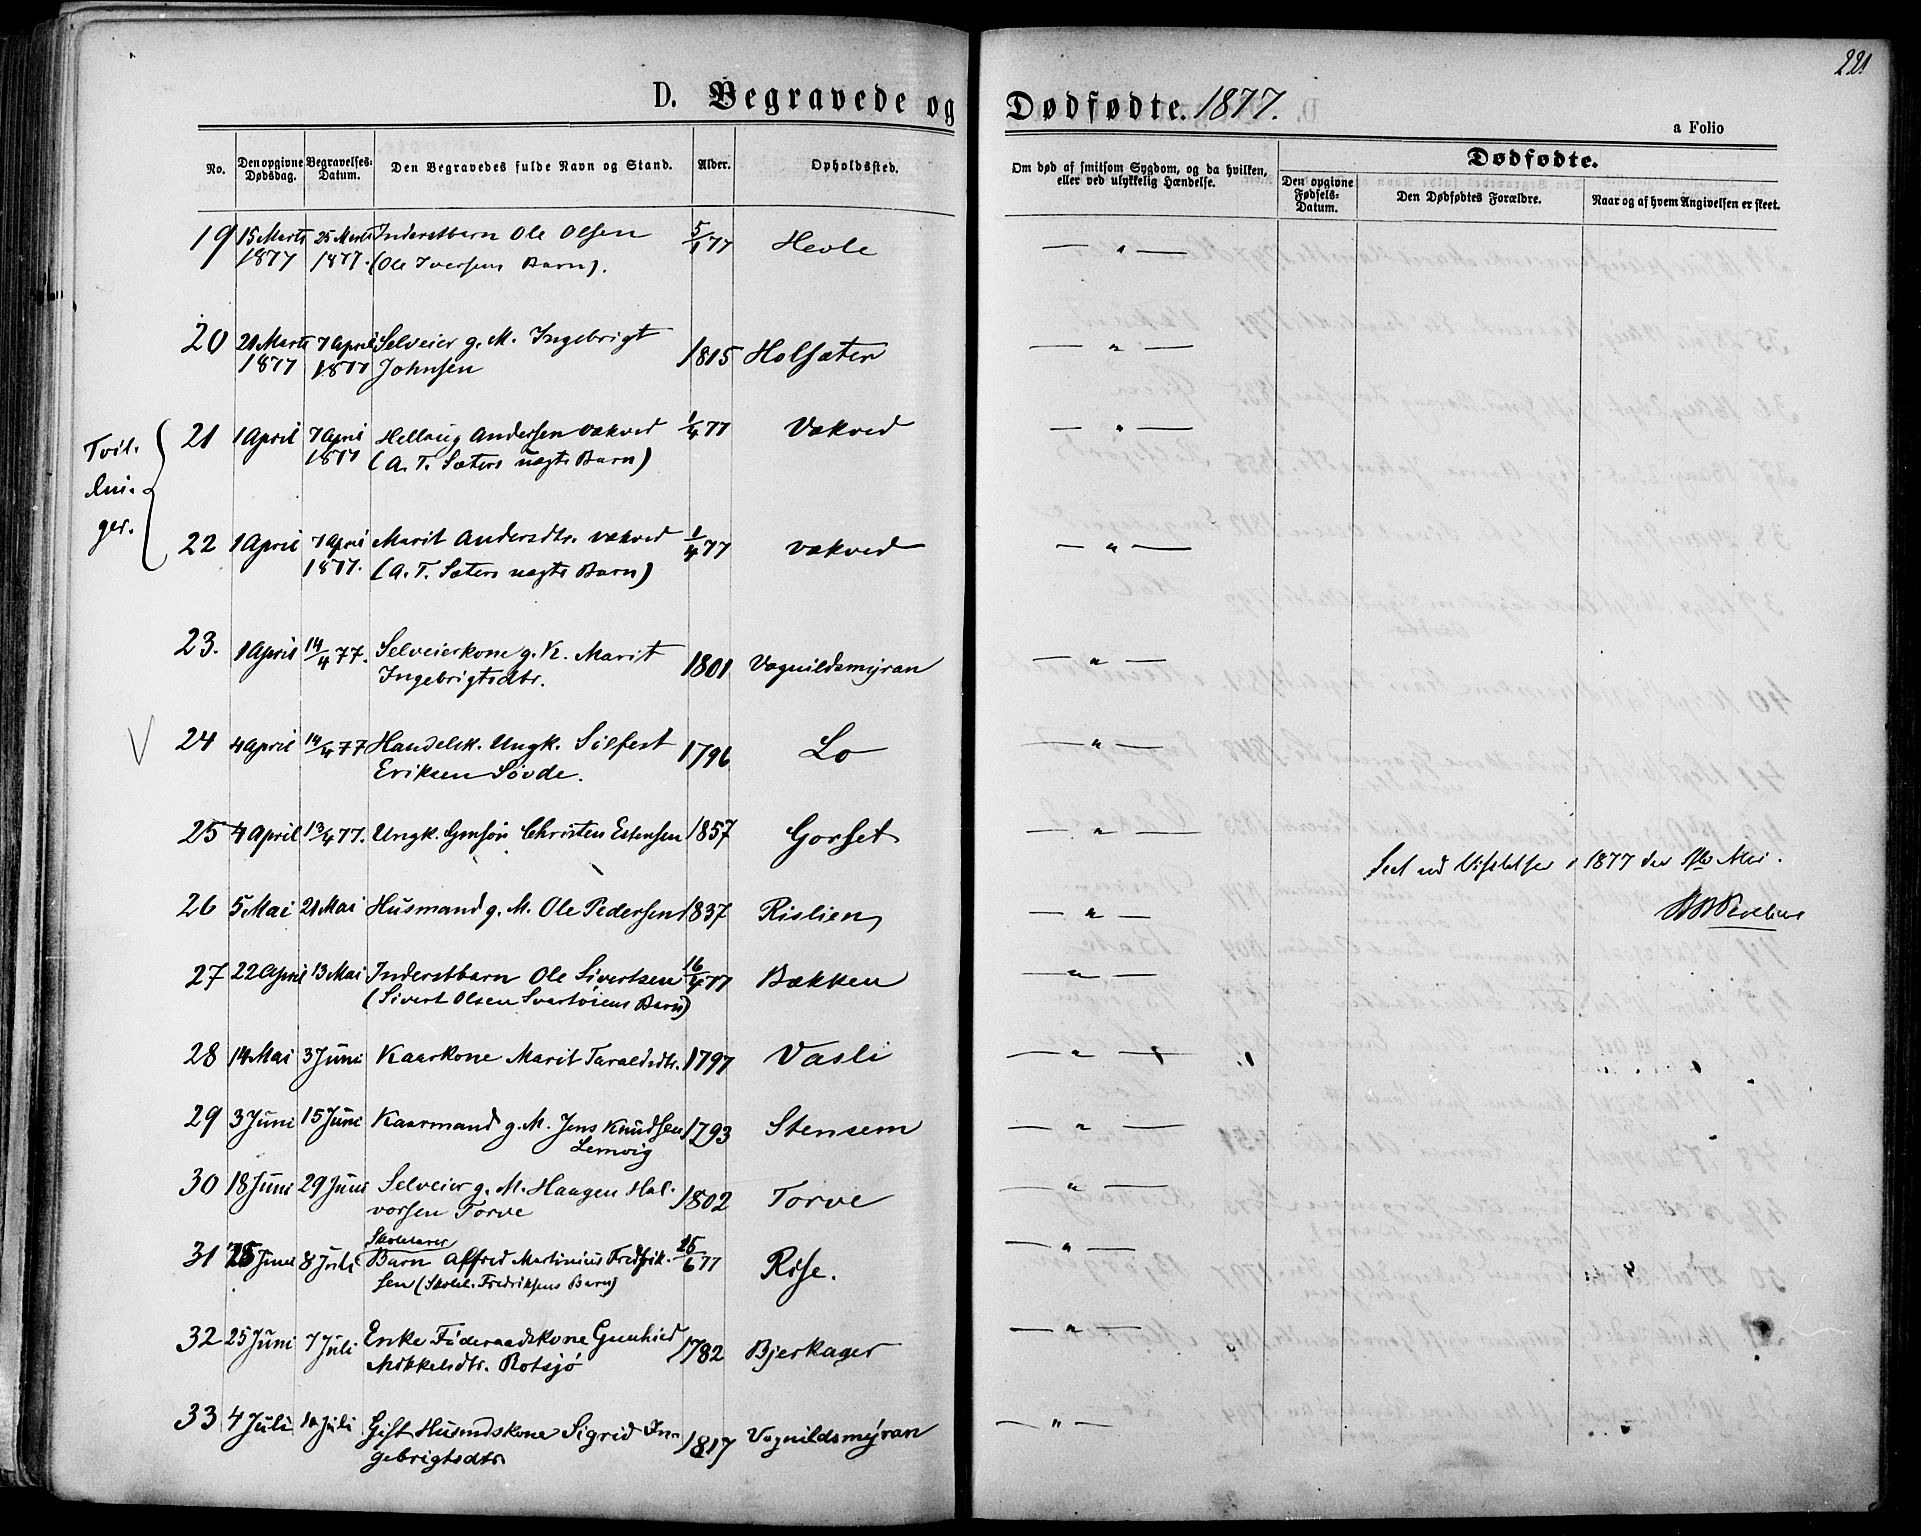 221
D. Begravede og Dødfødte. 1877.
a Folio
No. Den opgivne Dødsdag. Begravelses-Datum. Den Begravedes fulde Navn og Stand. Alder. Opholdssted. Om død af smitsom Sygdom, og da hvilken, eller ved ulykkelig Hændelse. Dødfødte.
Den opgivne Fødsels-Datum. Den Dødfødtes Forældre. Naar og af hvem Angivelsen er skeet.
19 15 Marts 25 Marts Inderstbarn Ole Olsen 5/1 77 Hevle — " —
1877 1877. (Ole Iversens Barn).
20 21 Marts 7 April Selveier g. M. Ingebrigt 1815 Holsæter — " —
1877 1877 Johnsen
Tvil-
lin-
ger.
21 1 April 7 April Hellaug Andersen Vækved 1/4 77 Vækved — " —
1877 (A. T. Sæters uægte Barn)
22 1 April 7 April Marit Andersdtr. Vækved 1/4 77 Vækved — " —
1877. (A. T. Sæters uægte Barn)
23. 1 April 14/4 77. Selveierkone g. K. Marit 1801 Vognildsmyran — " —
Ingebrigtsdtr.
V 24 4 April 14/4 77 Handelsk. Ungk. Silfest 1796 Lo — " —
Eriksen Søvde.
25 4 April 13/4 77. Ungk. Gmsøn Christen Estensen 1857 Gorset — " —
Seet ved Visitatsen i 1877 den Mai.
26 5 Mai 21 Mai Husmand g. M. Ole Pedersen 1837 Rislien — " —
27 22 April 13 Mai Inderstbarn Ole Sivertsen 16/4 77 Bækken — " —
(Sivert Olsen Svartøiens Barn)
28 14 Mai 3 Juni Kaarkone Marit Taraldsdtr. 1797 Vasli — " —
29 3 Juni 15 Juni Kaarmand g. M. Jens Knudsen 1793 Stensem — " —
Lemvig
30 18 Juni 29 Juni Selveier g. M. Haagen Hal- 1802 Torve — " —
vorsen Torve
Skolelærer
31 Juni 8 Juli Barn Alfred Martinius Fredrik- 25/6 77 Rise. — " —
sen (Skolel. Fredriksens Barn)
32 25 Juni 7 Juli Enke Føderaadskone Gunhild 1782 Bjerkager — " —
Mikkelsdtr. Rotsjø
33 4 Juli 10 Juli Gift Husmdskone Sigrid In- 1817 Vognildsmyran — " —
gebrigtsdtr